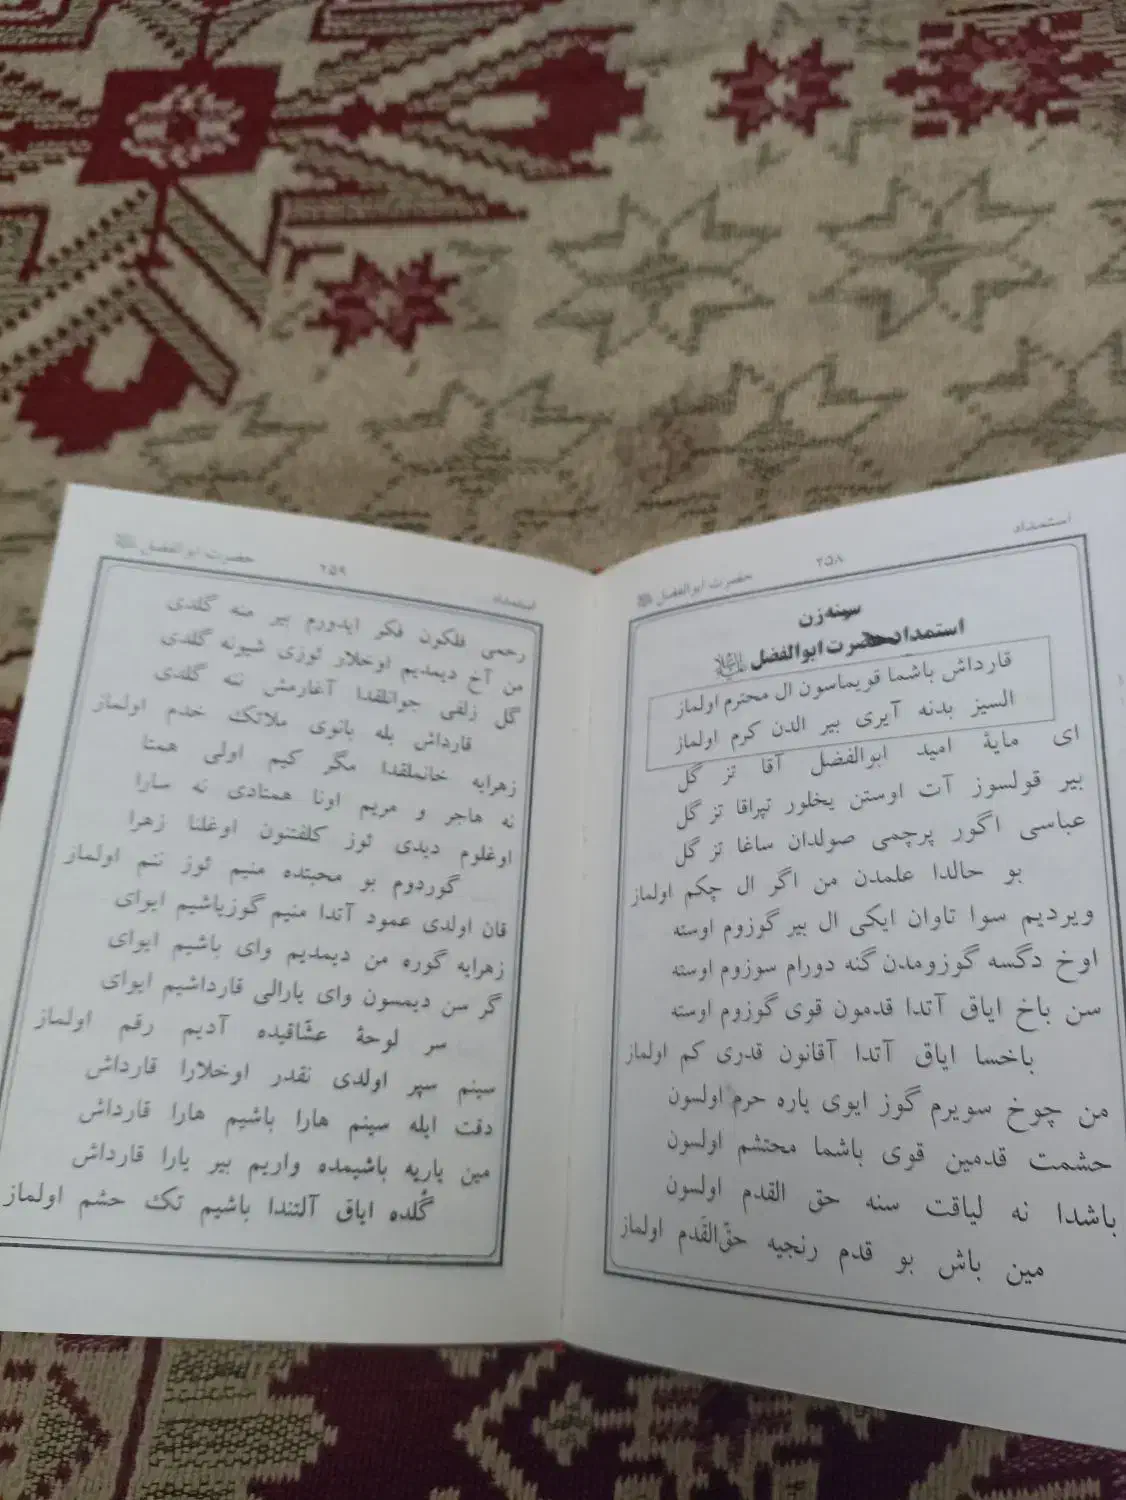 استمداد ۲۵۸ حضرت ابوالفضل
سینه‌زن
استمداد حضرت ابوالفضل علیه‌السلام
قارداش باشما قویماسون ال محترم اولماز
السیز بدنه آیری بیر الدن کرم اولماز
ای مایهٔ امید ابوالفضل آقا تز گل
بیر قولسوز آت اوستن یخلور تپراقا تز گل
عباسی اگور پرچمی صولدان ساغا تز گل
بو حالدا علمدن من اگر ال چکم اولماز
ویردیم سوا تاوان ایکی ال بیر گوزوم اوسته
اوخ دگسه گوزومدن گنه دورام سوزوم اوسته
سن باخ ایاق آتدا قدمون قوی گوزوم اوسته
باخسا ایاق آتدا آقانون قدری کم اولماز
من چوخ سویرم گوز ایوی یاره حرم اولسون
حشمت قدمین قوی باشما محتشم اولسون
باشدا نه لیاقت سنه حق القدم اولسون
مین باش بو قدم رنجیه حقّ‌القَدم اولماز
استمداد ۲۵۹ حضرت ابوالفضل
رحمی فلکون فکر ایدورم بیر منه گلدی
من آخ دیمدیم اوخلار ئوزی شیونه گلدی
گل زلفی جوانلقدا آغارمش ننه گلدی
قارداش بله بانوی ملاتک خدم اولماز
زهرایه خانملقدا مگر کیم اولی همتا
نه هاجر و مریم اونا همتادی نه سارا
اوغلوم دیدی ئوز کلفتنون اوغلنا زهرا
گوردوم بو محبتده منیم ئوز ننم اولماز
قان اولدی عمود آتدا منیم گوزیاشیم ایوای
زهرایه گوره من دیمدیم وای باشیم ایوای
گر سن دیمسون وای یارالی قارداشیم ایوای
سر لوحهٔ عشّاقیده آدیم رقم اولماز
سینم سپر اولدی نقدر اوخلارا قارداش
دقت ایله سینم هارا باشیم هارا قارداش
مین یاریه باشیمده واریم بیر یارا قارداش
گُلده ایاق آلتندا باشیم تک حشم اولماز